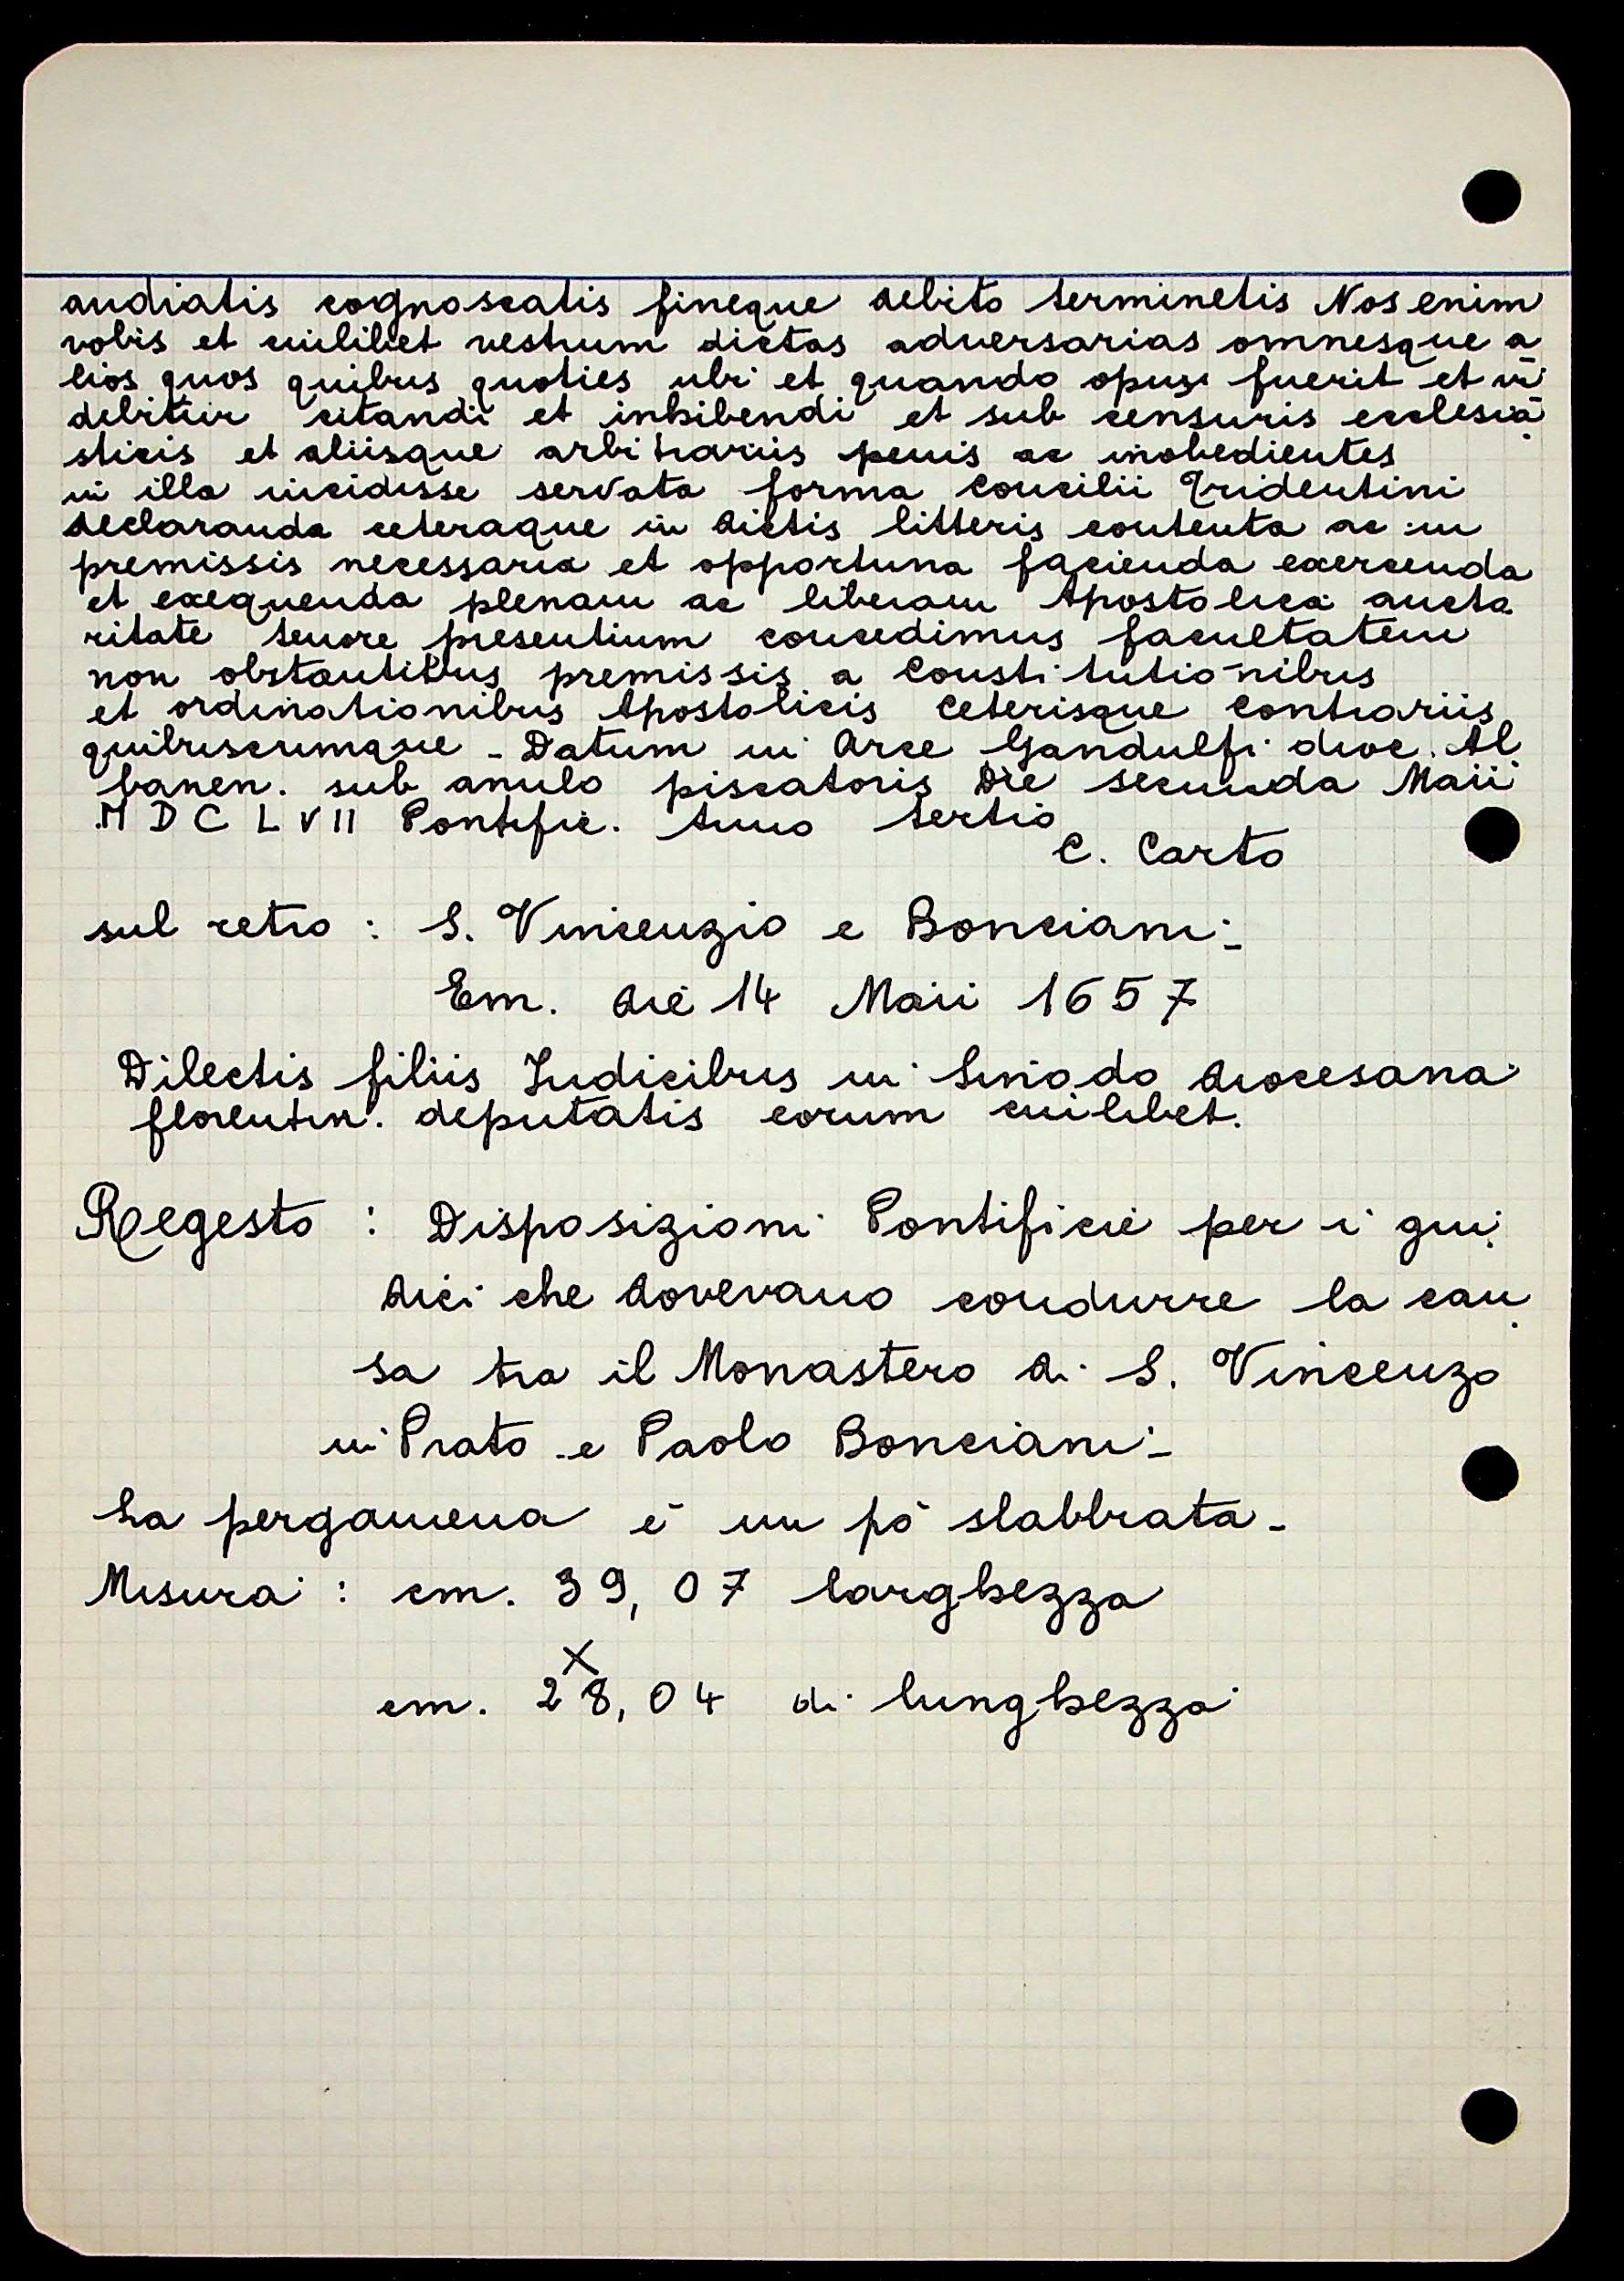 audiatis cognoscatis fineque debito terminetis Nos enim
vobis et cuilibet vestrum dictas adversarias omnesque a
lios quos quibus quoties ubi et quando opus fuerit et vi
debitur citandi et inhibendi et sub censuris ecclesia
sticis et aliisque arbitrariis penis ac inobedientes
in illa incidisse servata forma Concilii Tridentini
declaranda ceteraque in dictis litteris contenta ac in
premissis necessaria et opportuna facienda exercenda
et exequenda plenam ac liberam Apostolica aucta
ritate tenore presentium concedimus facultatem
non obstantibus premissis a Constitutionibus
et ordinationibus Apostolicis Ceterisque Contrariis
quibuscumque - Datum in Arce Gandulfi dioc. Al
banen. sub anulo piscatoris Die secunda Maii
M D C L V I I Pontific. Anno tertio
C. Carto
sul retro : S. Vincenzio e Bonciani -
Em. die 14 Maii 1657
Dilectis filiis Iudicibus in Sinodo diocesana
florentin. deputatis eorum cuilibet.
Regesto : Disposizioni Pontificie per i giu
dici che dovevano condurre la cau
sa tra il Monastero di S. Vincenzo
in Prato - e Paolo Bonciani -
La pergamena è un pò slabbrata -
Misura : cm. 39,07 larghezza
x
cm. 28,04 di lunghezza